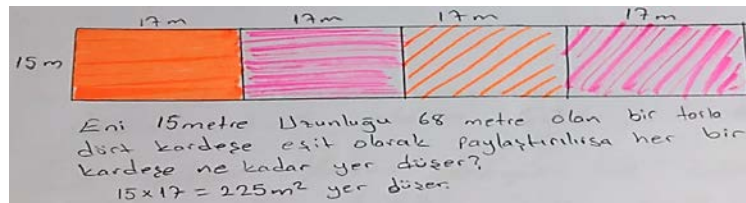 17m 17m 17m 17m
15m
Eni 15metre Uzunluğu 68 metre olan bir tarla
dört kardeşe eşit olarak paylaştırılırsa her bir
kardeşe ne kadar yer düşer?
15x17=225m² yer düşer.